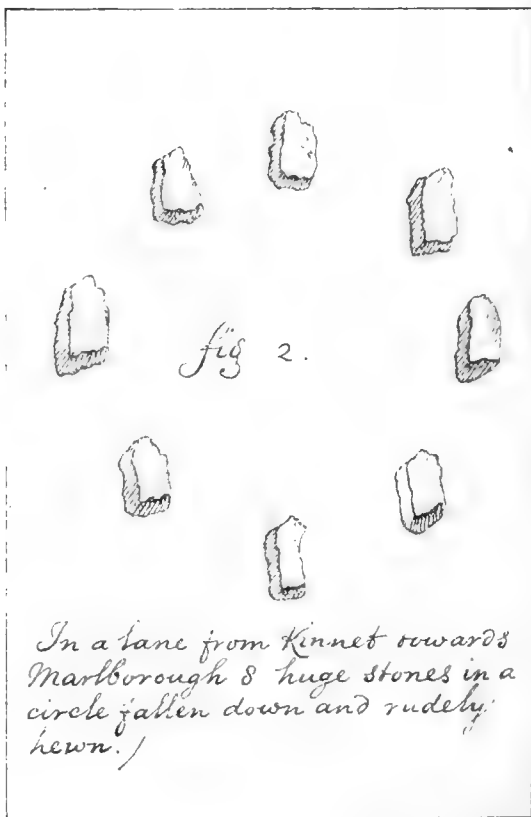 fig 2.
In a lane from Kinnet towards
Marlborough 8 huge stones in a
circle fallen down and rudely
hewn.